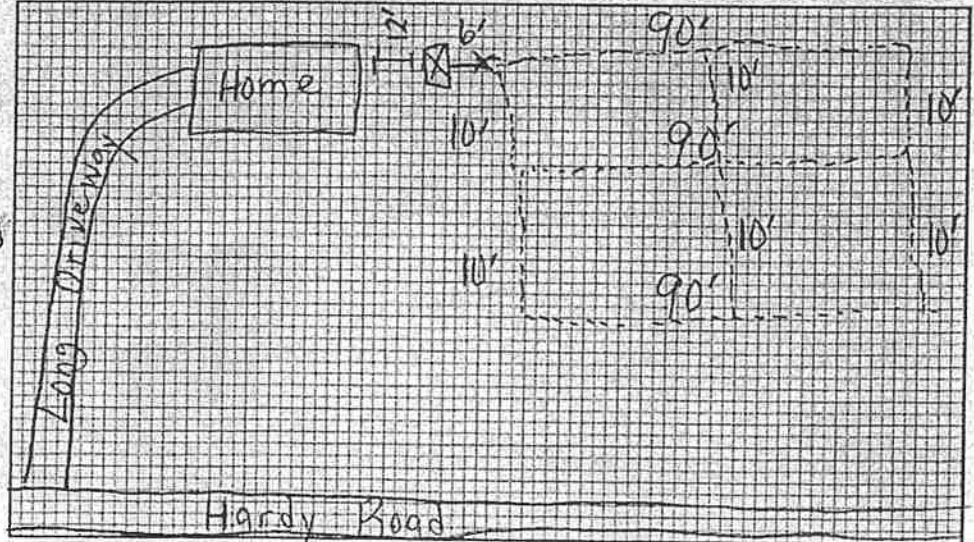 90'
12' 6'
Home
10'
10'
10'
90'
10'
10'
10'
90'
Long Driveway
Hardy Road